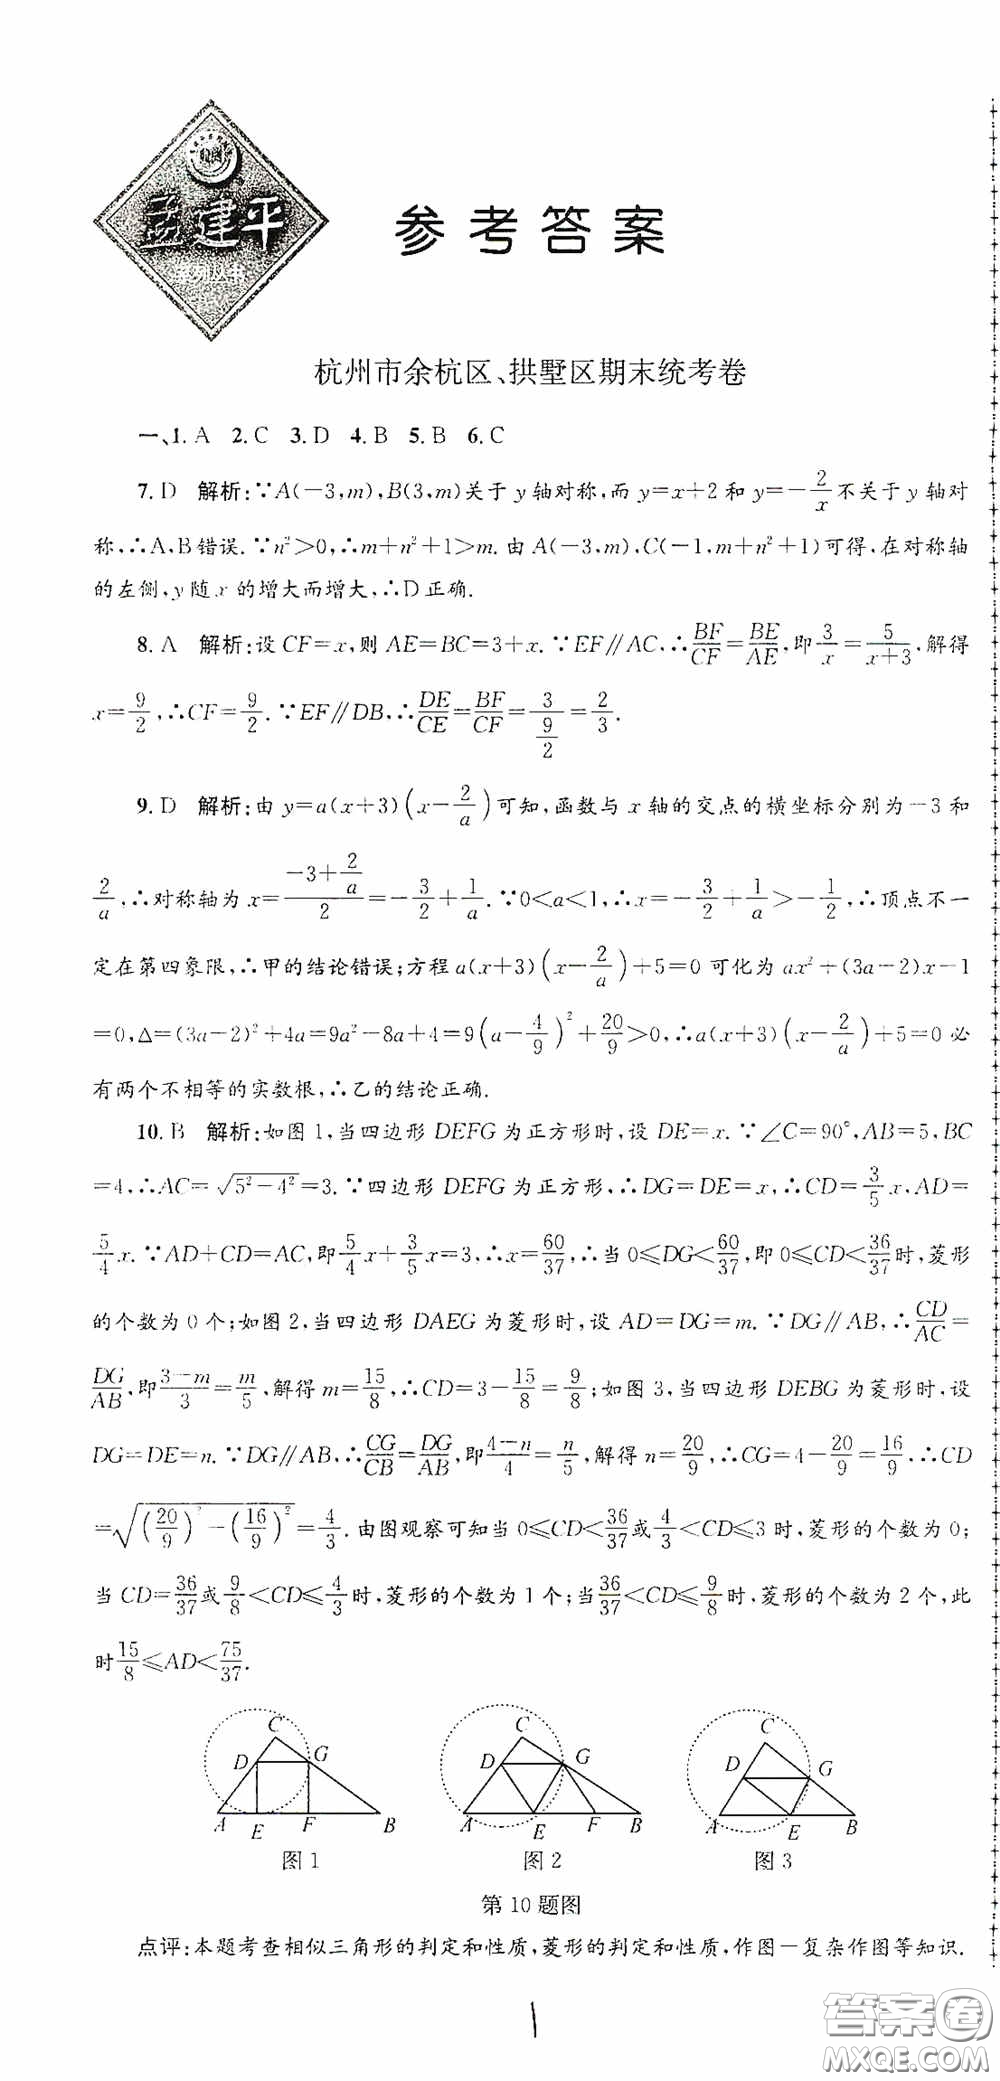 孟建平
系列丛书
参考答案
杭州市余杭区、拱墅区期末统考卷
一、1. A 2. C 3. D 4. B 5. B 6. C
7. D 解析:∵A(-3,m),B(3,m)关于 y 轴对称,而 y=x+2 和 y=-2/x 不关于 y 轴对
称,∴A、B 错误.∵n²>0,∴m+n²+1>m. 由 A(-3,m),C(-1,m+n²+1)可得,在对称轴
的左侧,y 随 x 的增大而增大,∴D 正确.
8. A 解析:设 CF=x,则 AE=BC=3+x.∵EF∥AC,∴BF/CF=BE/AE,即 3/x=5/(x+3),解得
x=9/2,∴CF=9/2.∵EF∥DB,∴DE/CE=BF/CF=3/(9/2)=2/3.
9. D 解析:由 y=a(x+3)(x-2/a)可知,函数与 x 轴的交点的横坐标分别为-3 和
2/a,∴对称轴为 x=(-3+2/a)/2=-3/2+1/a.∵0<a<1,∴x=-3/2+1/a>-1/2,∴顶点不一
定在第四象限,∴甲的结论错误;方程 a(x+3)(x-2/a)+5=0 可化为 ax²+(3a-2)x-1
=0,Δ=(3a-2)²+4a=9a²-8a+4=9(a-4/9)²+20/9>0,∴a(x+3)(x-2/a)+5=0 必
有两个不相等的实数根,∴乙的结论正确.
10. B 解析:如图 1,当四边形 DEFG 为正方形时,设 DE=x.∵∠C=90°,AB=5,BC
=4,∴AC=√(5²-4²)=3.∵四边形 DEFG 为正方形,∴DG=DE=x,∴CD=3/5x,AD=
5/4x.∵AD+CD=AC,即5/4x+3/5x=3,∴x=60/37,∴当 0≤DG<60/37,即 0≤CD<36/37时,菱形
的个数为 0 个;如图 2,当四边形 DAEG 为菱形时,设 AD=DG=m.∵DG∥AB,∴CD/AC=
DG/AB,即(3-m)/3=m/5,解得 m=15/8,∴CD=3-15/8=9/8;如图 3,当四边形 DEBG 为菱形时,设
DG=DE=n.∵DG∥AB,∴CG/CB=DG/AB,即(4-n)/4=n/5,解得 n=20/9,∴CG=4-20/9=16/9,∴CD
=√((20/9)²-(16/9)²)=4/3.由图观察可知当 0≤CD<36/37或4/3<CD≤3 时,菱形的个数为 0;
当 CD=36/37或9/8<CD≤4/3时,菱形的个数为 1 个;当36/37<CD≤9/8时,菱形的个数为 2 个,此
时15/8≤AD<75/37.
C D G A E F B
C D G A E F B
C D G A E B
图 1 图 2 图 3
第 10 题图
点评:本题考查相似三角形的判定和性质,菱形的判定和性质,作图-复杂作图等知识.
1
答案卷
MXQE.COM